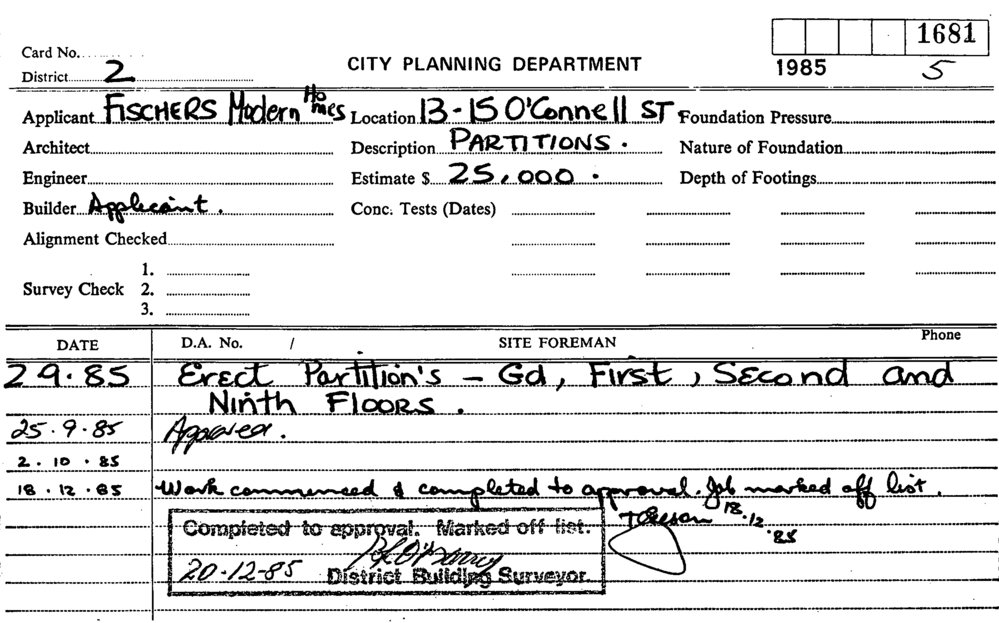 1681
Card No.
CITY PLANNING DEPARTMENT
1985 5
District 2
Applicant FISCHERS Modern Homes Location 13-15 O'Connell ST Foundation Pressure
Architect Description PARTITIONS. Nature of Foundation
Engineer Estimate $ 25,000. Depth of Footings
Builder Applicant. Conc. Tests (Dates)
Alignment Checked
1.
Survey Check 2.
3.
DATE D.A. No. / SITE FOREMAN Phone
2 9.85 Erect Partition's - Gd, First, Second and
Ninth Floors.
25.9.85 Approved.
2.10.85
18.12.85 Work commenced & completed to approval. Job marked off list.
18.12.85
Completed to approval. Marked off list.
20-12-85 District Building Surveyor.